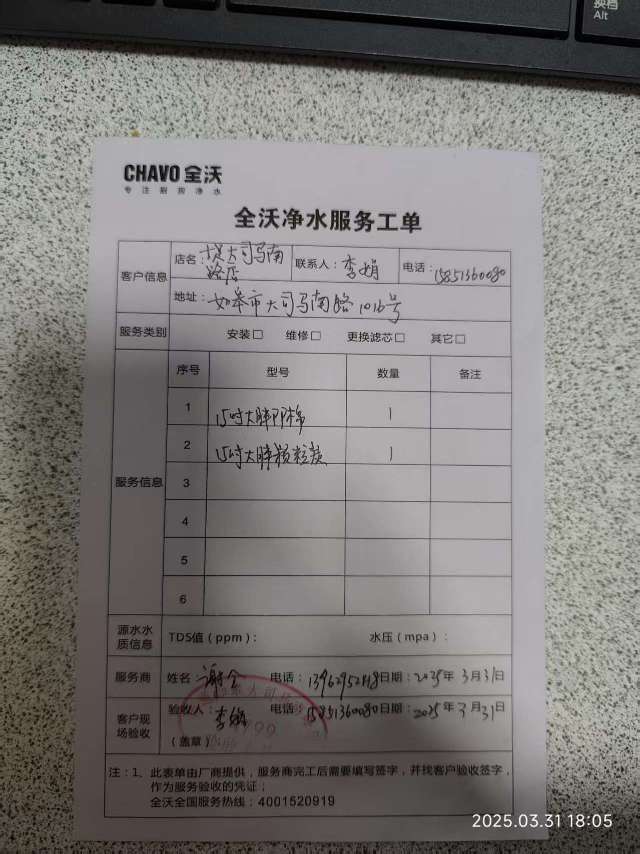 换档
Alt
CHAVO 全沃
专注厨房净水
全沃净水服务工单
客户信息
店名： 大司马南
路店
联系人：李娟
电话：15851360080
地址：如皋市大司马南路1016号
服务类别
安装□ 维修□ 更换滤芯□ 其它□
服务信息
序号 型号 数量 备注
1 15吋大胖PP棉 1
2 15吋大胖颗粒炭 1
3
4
5
6
源水水
质信息
TDS值（ppm）： 水压（mpa）：
服务商 姓名：谢全 电话：13962952118 日期：2025年3月31日
客户现
场验收
验收人：李娟 电话：15851360080 日期：2025年3月31日
（盖章）
注：1、此表单由厂商提供，服务商完工后需要填写签字，并找客户验收签字，
作为服务验收的凭证；
全沃全国服务热线：4001520919
2025.03.31 18:05